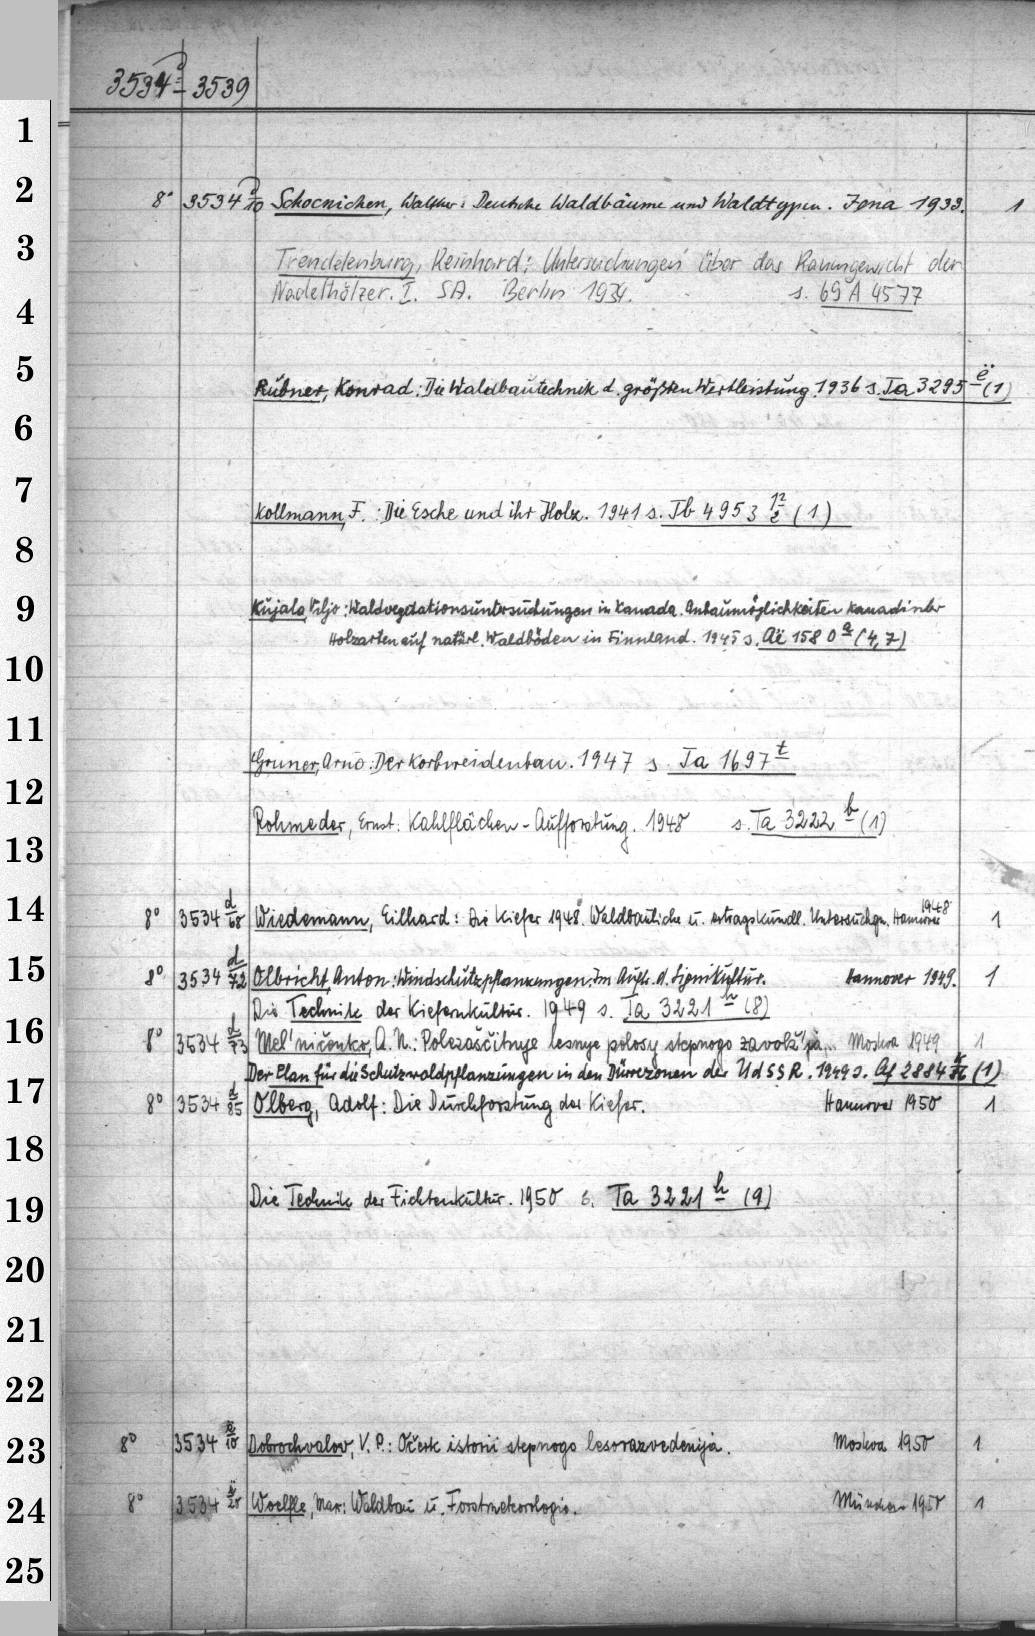 3534 d - 3539
1
2
8° 3534 d/10 Schoenichen, Walther: Deutsche Waldbäume und Waldtypen. Jena 1933. 1
3
Trendelenburg, Reinhard: Untersuchungen über das Raumgewicht der
Nadelhölzer. I. SA. Berlin 1934. s. 69 A 4577
4
5
Rubner, Konrad: Die Waldbautechnik d. größten Wertleistung. 1936 s. Ta 3295 ë (1)
6
7
Kollmann, F.: Die Esche und ihr Holz. 1941 s. Tb 4953 (1)
8
9
Kujala, Viljo: Waldvegetationsuntersuchungen in Kanada. Anbaumöglichkeiten kanadischer
Holzarten auf natürl. Waldböden in Finnland. 1945 s. Aï 1580 a (4,7)
10
11
Gruner, Arno: Der Korbweidenbau. 1947 s. Ta 1697 t
12
Rohmeder, Ernst. Kahlflächen-Aufforstung. 1948 s. Ta 3222 b (1)
13
14
8° 3534 d/68 Wiedemann, Eilhard: Die Kiefer 1948. Waldbauliche u. ertragskundl. Untersuchgn. Hannover 1948 1
15
8° 3534 d/72 Olbricht, Anton: Windschutzpflanzungen. Im Auftr. d. Lignikultur. Hannover 1949. 1
Die Technik der Kiefernkultur. 1949 s. Ta 3221 h (8)
16
8° 3534 d/73 Mel'ničenko, A. N.: Polezaščitnye lesnye polosy stepnogo zavolž'ja... Moskva 1949 1
Der Plan für die Schutzwaldpflanzungen in den Dürrezonen der UdSSR. 1949 s. Af 2884 (1)
17
8° 3534 d/85 Olberg, Adolf: Die Durchforstung der Kiefer. Hannover 1950 1
18
19
Die Technik der Fichtenkultur. 1950 s. Ta 3221 h (9)
20
21
22
23
8° 3534 Dobrochvalov, V. P.: Očerk istorii stepnogo lesorazvedenija. Moskva 1950 1
24
8° 3534 Woelfle, Max: Waldbau u. Forstmeteorologie. München 1950 1
25